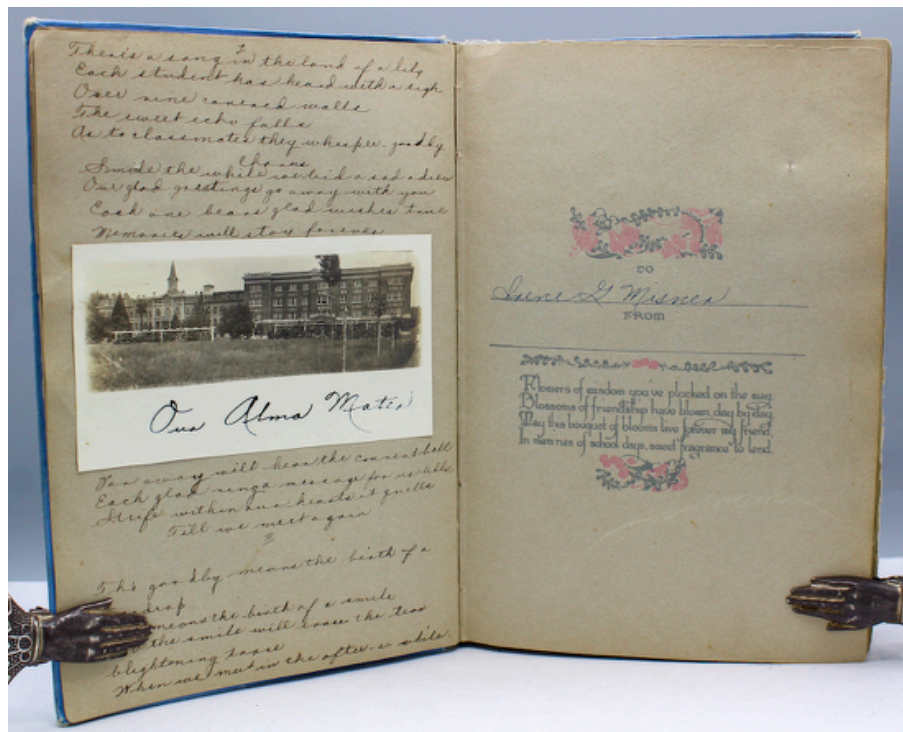 I
There's a song in the land of a lily
Each student has heard with a sigh
Over vine covered walls
The sweet echo falls
As to classmates they whisper - good by
Chorus
Smile the while we bid a sad adieu
Our glad greetings go away with you
Each one bears glad wishes true
Memories will stay forever
Our Alma Mater
Far away will hear the convent bell
Each glad ring a message for us
Strife within our hearts it quells
Till we meet again
II
Tho goodby means the birth of a
drop
means the birth of a smile
the smile will the tear
blightening
When we meet in the after a while.
TO
Irene G Misner
FROM
Flowers of wisdom you've plucked on the way,
Blossoms of friendship have blown, day by day,
May this bouquet of blooms live forever my friend,
In mem'ries of school days, sweet fragrance to lend.